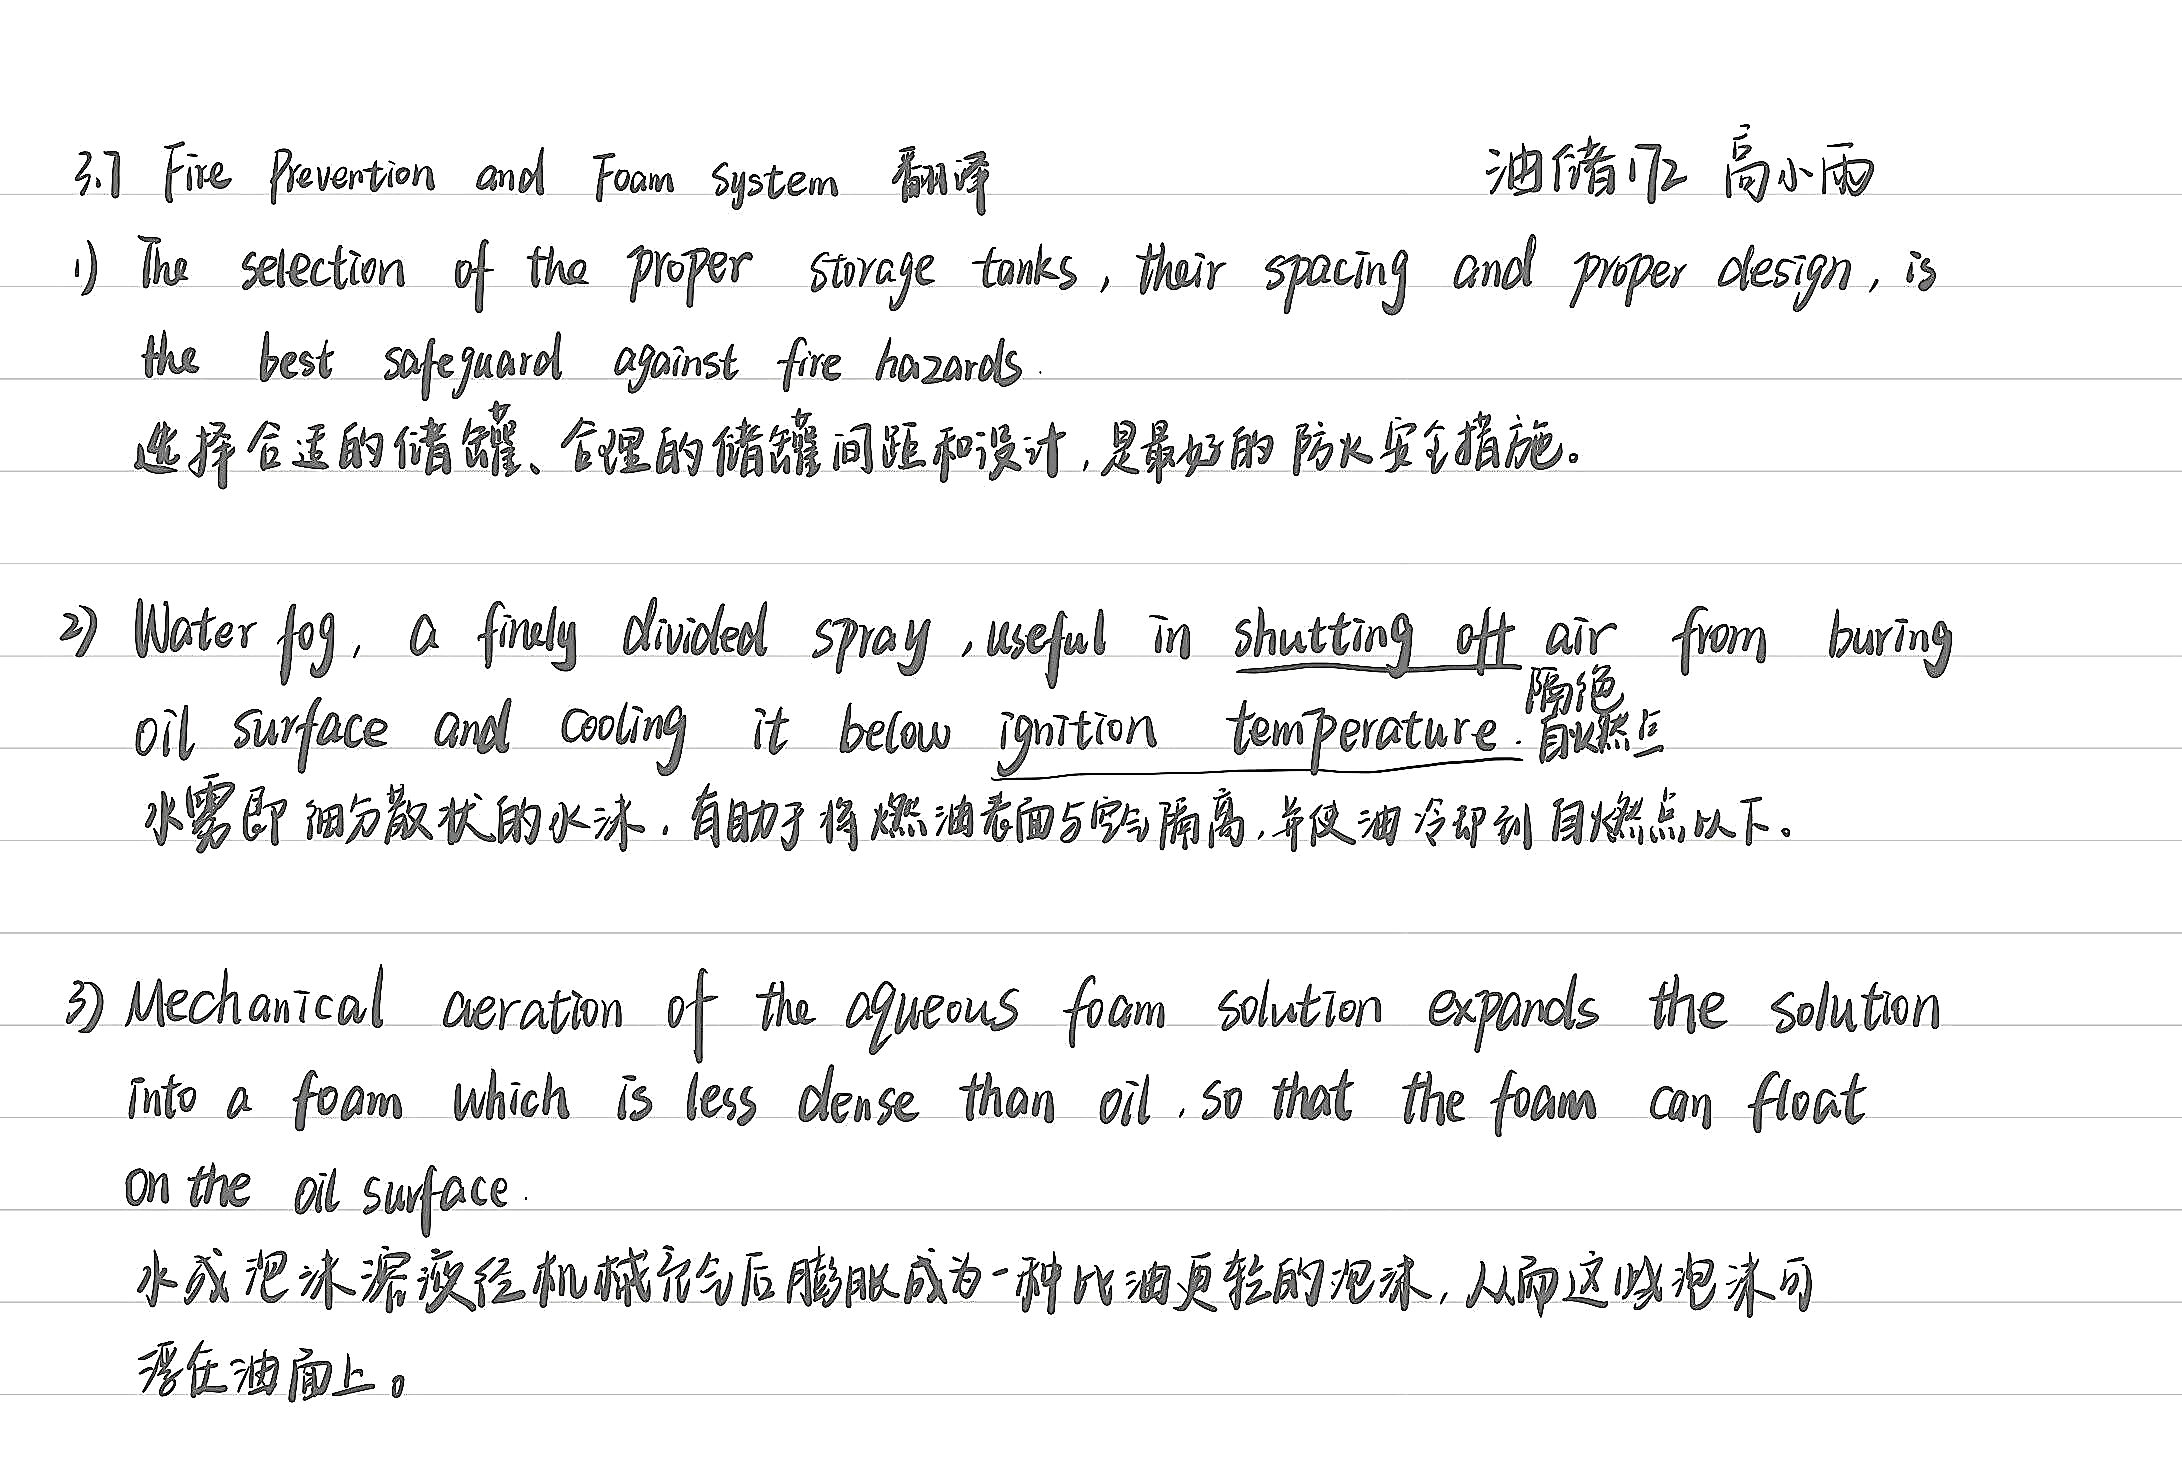 3.7 Fire Prevention and Foam System 翻译 油储172 高小雨
1) The selection of the proper storage tanks, their spacing and proper design, is
the best safeguard against fire hazards.
选择合适的储罐、合理的储罐间距和设计,是最好的防火安全措施。
2) Water fog, a finely divided spray, useful in shutting off air from buring
隔绝
oil surface and cooling it below ignition temperature. 自燃点
水雾即细分散状的水沫,有助于将燃油表面与空气隔离,并使油冷却到自燃点以下。
3) Mechanical aeration of the aqueous foam solution expands the solution
into a foam which is less dense than oil, so that the foam can float
on the oil surface.
水成泡沫溶液经机械充气后膨胀成为一种比油更轻的泡沫,从而这些泡沫可
浮在油面上。